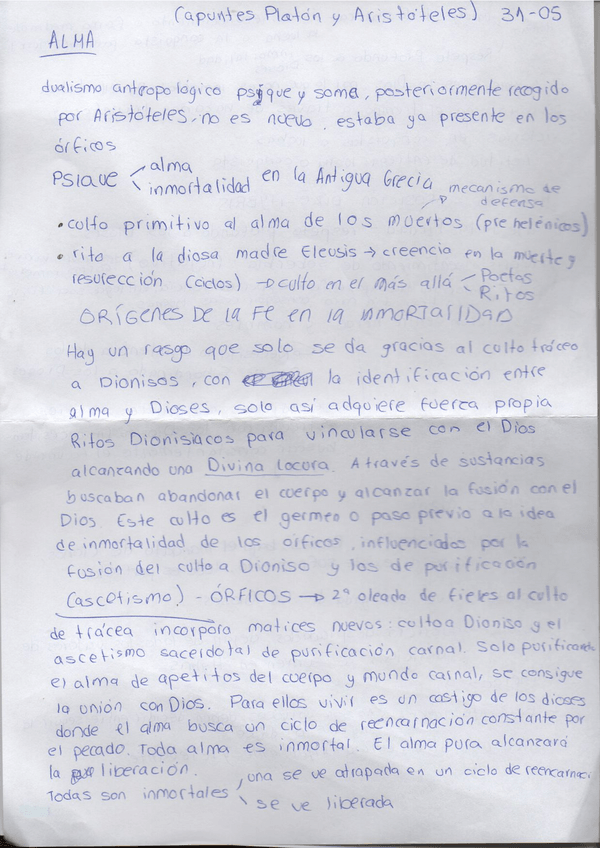 (apuntes Platón y Aristóteles) 31-05
ALMA
dualismo antropológico psique y soma, posteriormente recogido
por Aristóteles, no es nuevo, estaba ya presente en los
órficos
PSIQUE alma
inmortalidad en la Antigua Grecia
mecanismo de
defensa
• culto primitivo al alma de los muertos (prehelénicos)
• rito a la diosa madre Eleusis → creencia en la muerte y
resurección (ciclos) → culto en el más allá Poetas
Ritos
ORÍGENES DE LA FE EN LA INMORTALIDAD
Hay un rasgo que solo se da gracias al culto tráceo
a Dionisos, con la identificación entre
alma y Dioses, solo así adquiere fuerza propia
Ritos Dionisíacos para vincularse con el Dios
alcanzando una Divina locura. A través de sustancias
buscaban abandonar el cuerpo y alcanzar la fusión con el
Dios. Este culto es el germen o paso previo a la idea
de inmortalidad de los órficos, influenciados por la
fusión del culto a Dioniso y los de purificación
(ascetismo) - ÓRFICOS → 2ª oleada de fieles al culto
de trácea incorpora matices nuevos: culto a Dioniso y el
ascetismo sacerdotal de purificación carnal. Solo purificando
el alma de apetitos del cuerpo y mundo carnal, se consigue
la unión con Dios. Para ellos vivir es un castigo de los dioses
donde el alma busca un ciclo de reencarnación constante por
el pecado. Toda alma es inmortal. El alma pura alcanzará
la liberación.
Todas son inmortales una se ve atrapada en un ciclo de reencarnaci
se ve liberada